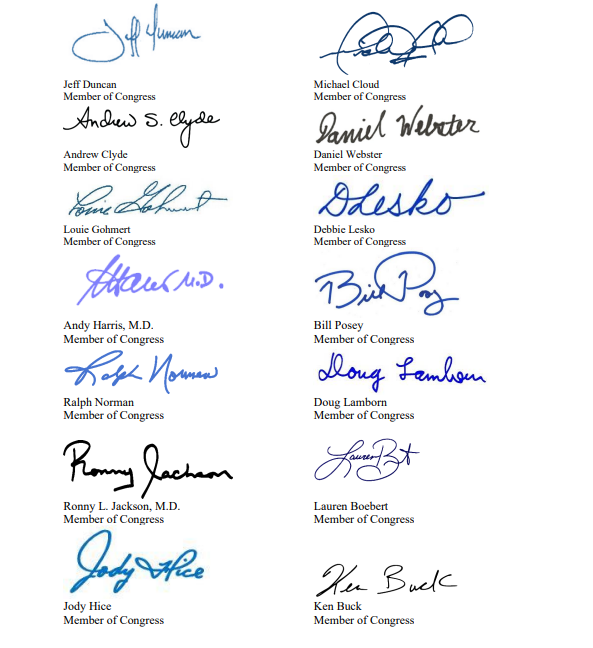 Jeff Duncan
Jeff Duncan
Member of Congress
Michael Cloud
Member of Congress
Andrew S. Clyde
Andrew Clyde
Member of Congress
Daniel Webster
Daniel Webster
Member of Congress
Louie Gohmert
Louie Gohmert
Member of Congress
DLesko
Debbie Lesko
Member of Congress
AHarris M.D.
Andy Harris, M.D.
Member of Congress
Bill Posey
Bill Posey
Member of Congress
Ralph Norman
Ralph Norman
Member of Congress
Doug Lamborn
Doug Lamborn
Member of Congress
Ronny Jackson
Ronny L. Jackson, M.D.
Member of Congress
Lauren Boebert
Member of Congress
Jody Hice
Jody Hice
Member of Congress
Ken Buck
Ken Buck
Member of Congress